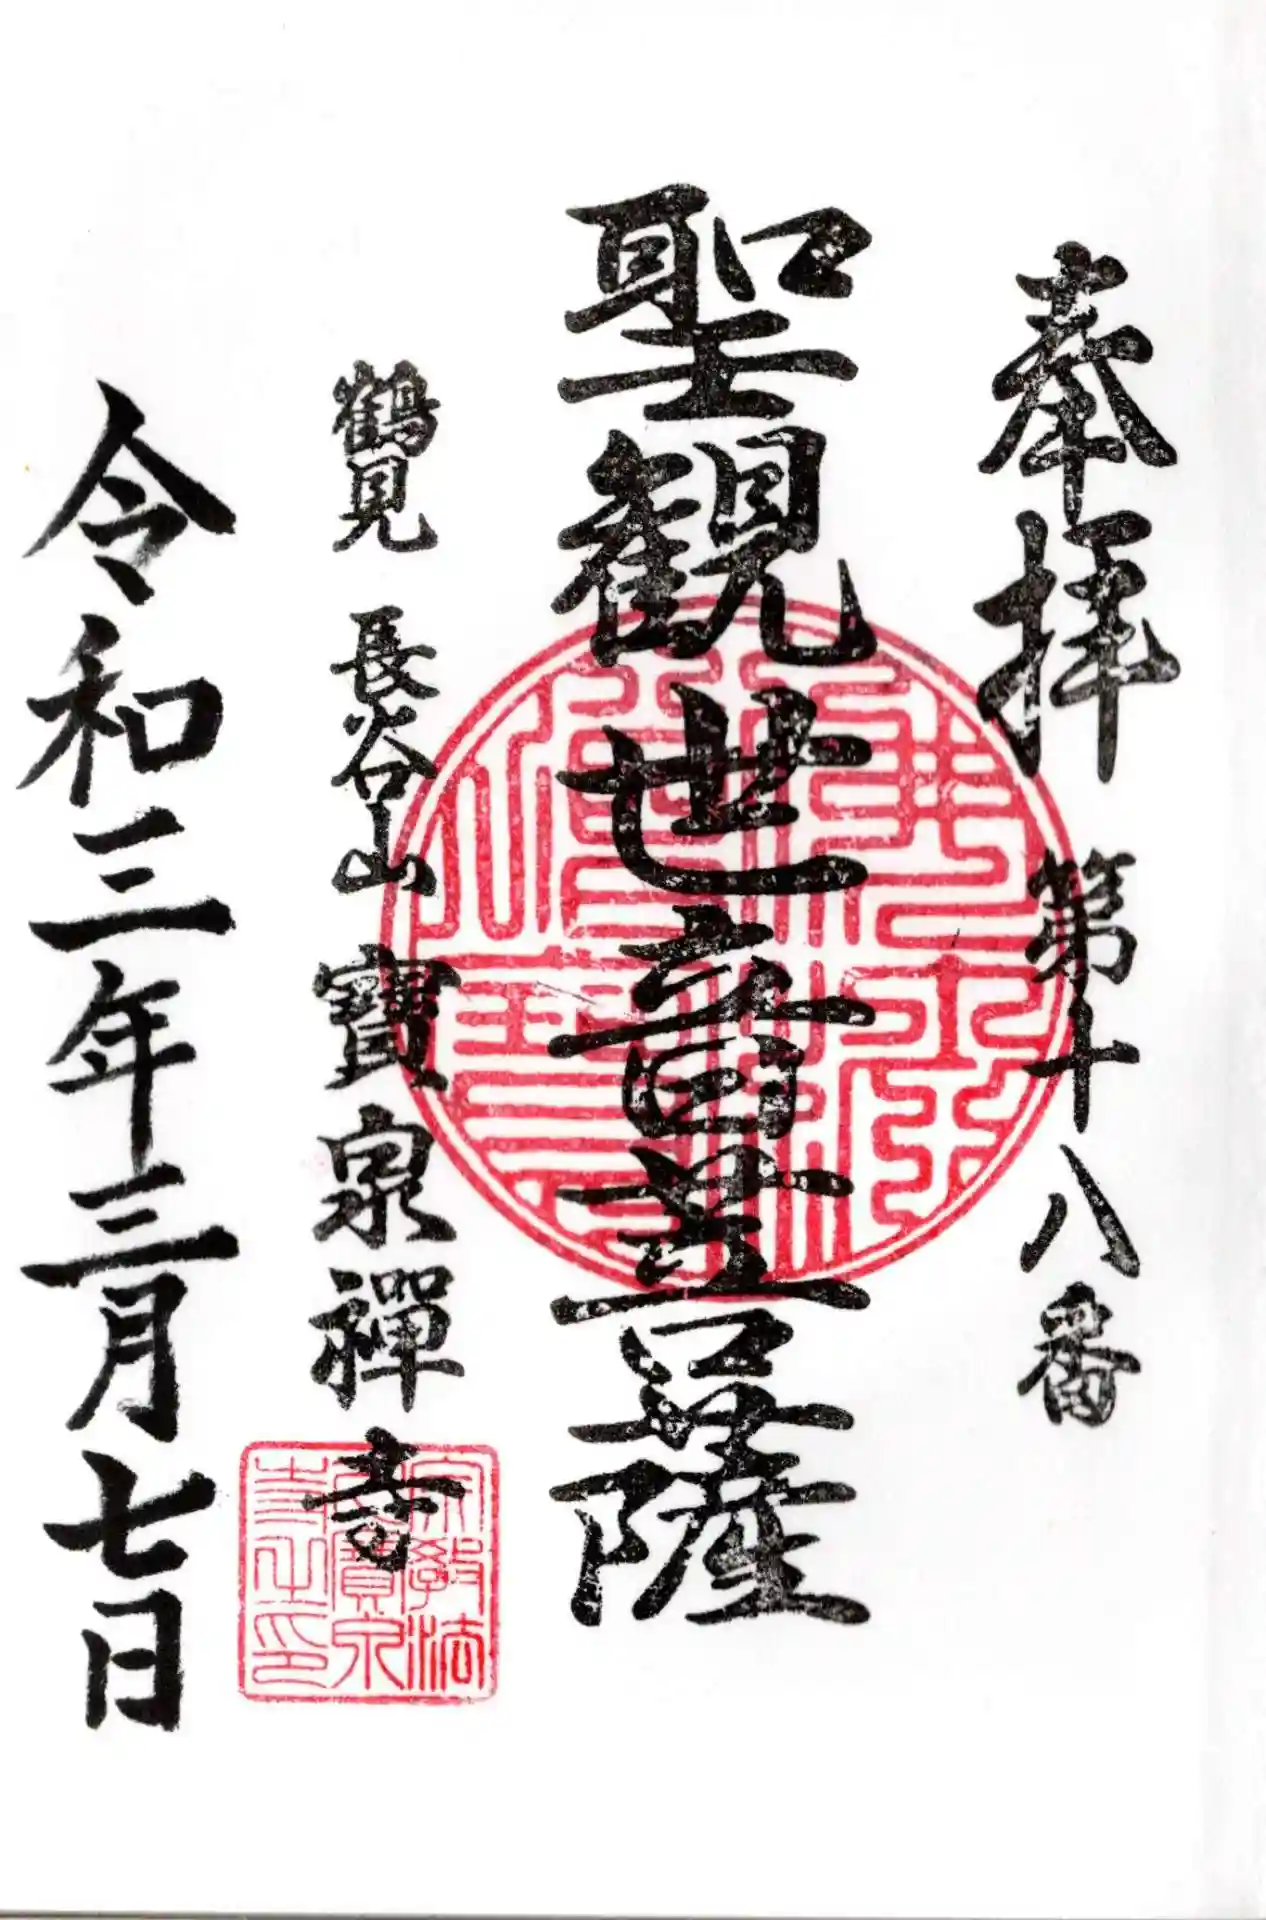 奉拝 第十八番
聖観世音菩薩
鶴見 長谷山 寶泉禪寺
宗教法
人寶泉
寺之印
令和三年三月七日